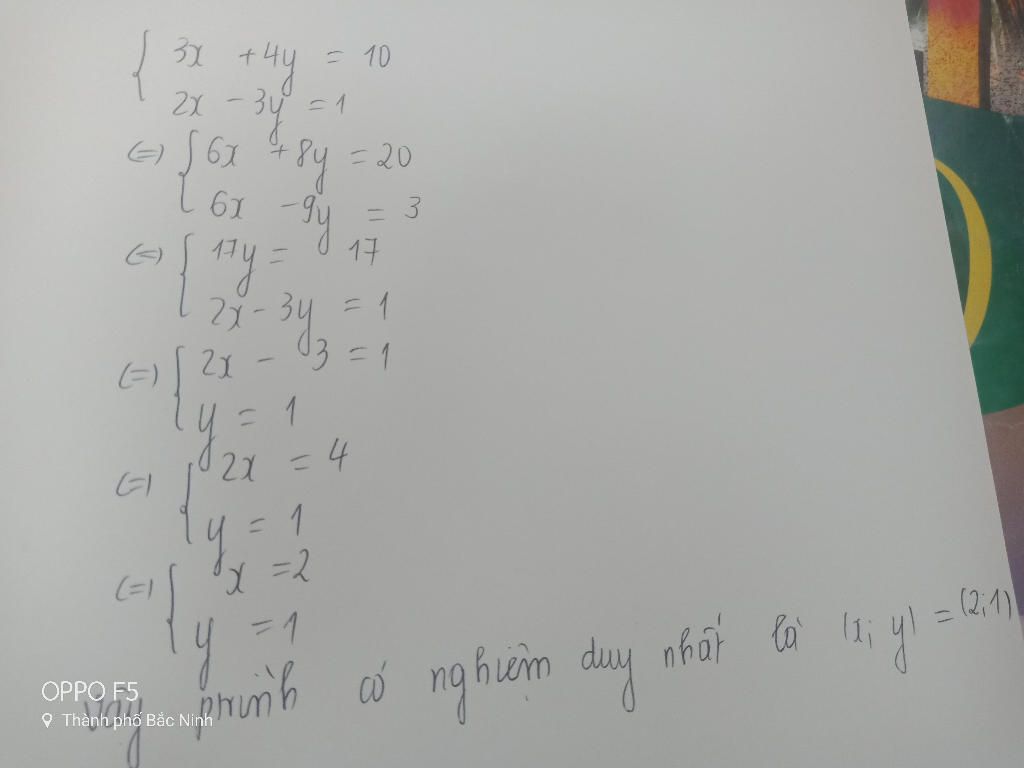 { 3x + 4y = 10
2x - 3y = 1
(=) { 6x + 8y = 20
6x - 9y = 3
(=) { 17y = 17
2x - 3y = 1
(=) { 2x - 3 = 1
y = 1
(=) { 2x = 4
y = 1
(=) { x = 2
y = 1
vậy ptrình có nghiệm duy nhất là (x; y) = (2; 1)
OPPO F5
Thành phố Bắc Ninh